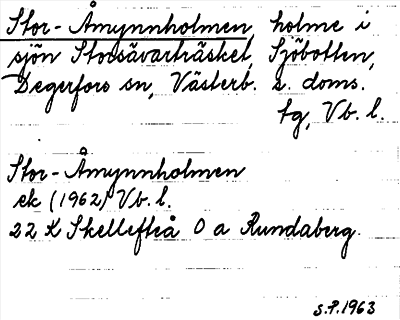 Stor-Åmynnholmen, holme i
sjön Storsävarträsket, Sjöbotten,
Degerfors sn, Västerb. s. doms.
tg, Vb. l.
Stor-Åmynnholmen
ek (1962) Vb. l.
22 K Skellefteå O a Rundaberg.
S.P. 1963